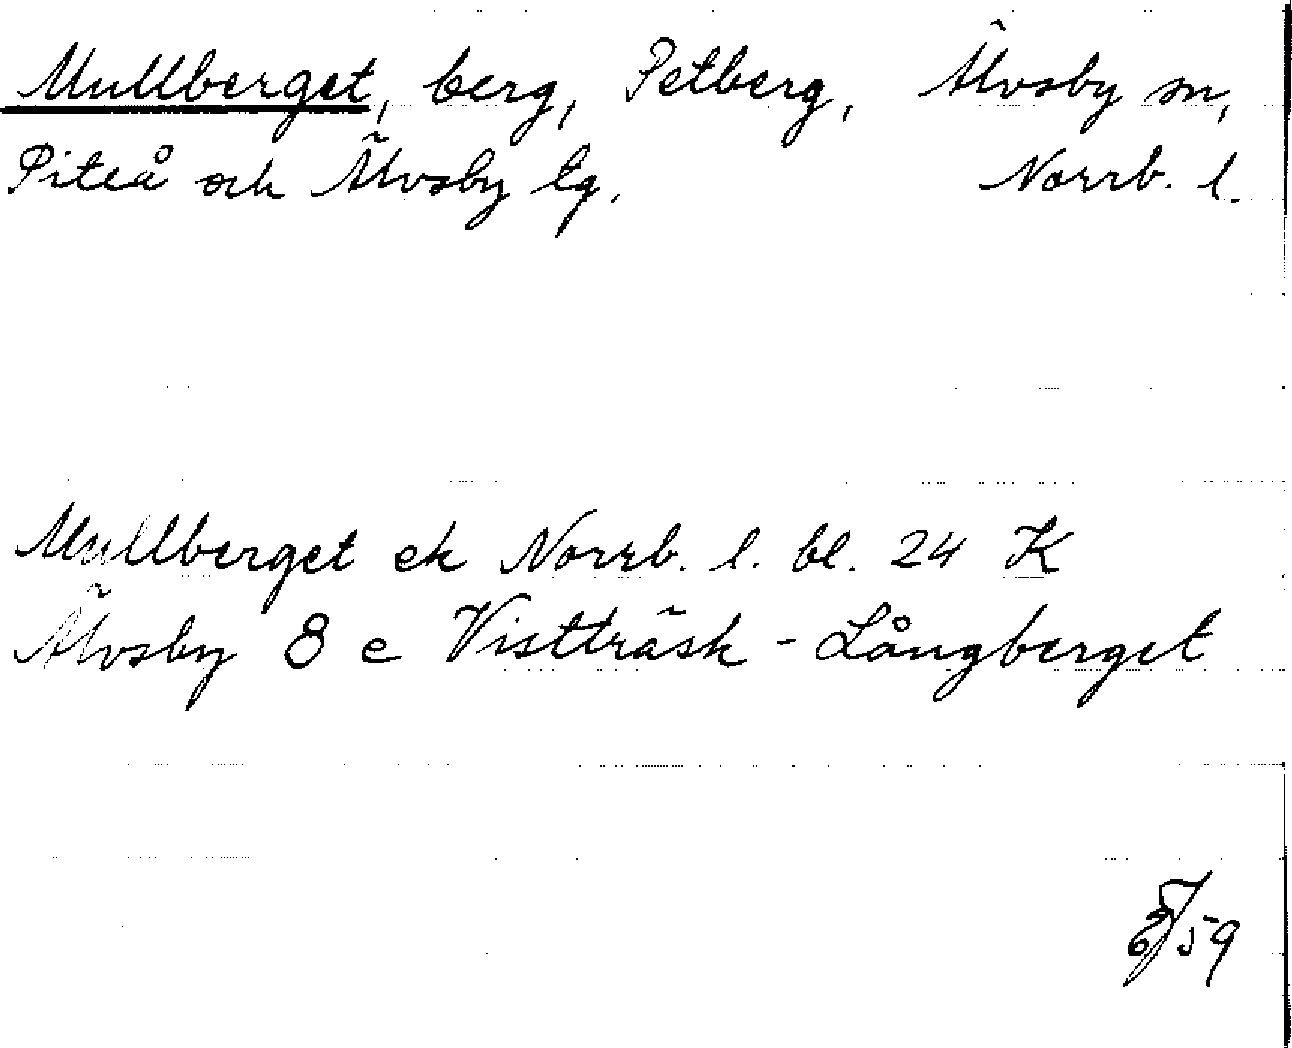 Mullberget, berg, Petberg, Älvsby sn,
Piteå och Älvsby tg. Norrb. l.
Mullberget ek Norrb. l. bl. 24 K
Älvsby 8 e Vistträsk - Långberget
59